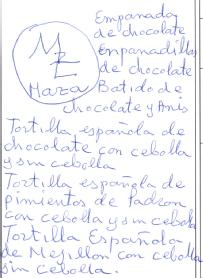 Empanada
de chocolate
Empanadillas
de chocolate
MZ
Maza
Batido de
chocolate y Anis
Tortilla española de
chocolate con cebolla
y sin cebolla
Tortilla española de
pimientos de Padron
con cebolla y sin cebolla
Tortilla Española
de Mejillon con cebolla
sin cebolla.